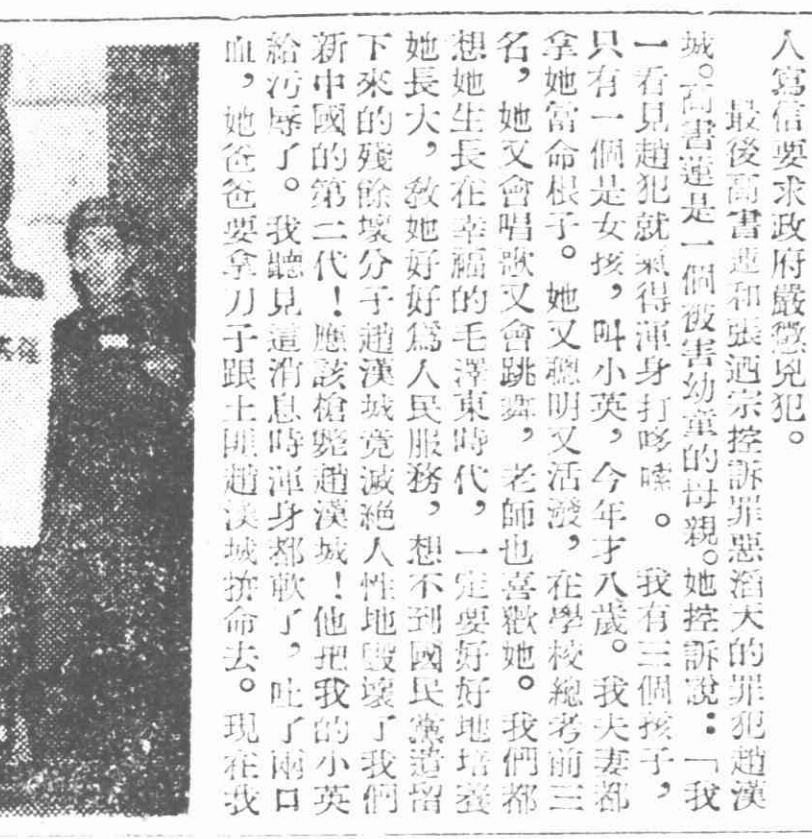 人寫信要求政府嚴懲兇犯。
最後高書蓮和張迺宗控訴罪惡滔天的罪犯趙漢
城。高書蓮是一個被害幼童的母親。她控訴說：「我
一看見趙犯就氣得渾身打哆嗦。我有三個孩子，
只有一個是女孩，叫小英，今年才八歲。我夫妻都
拿她當命根子。她又聰明又活潑，在學校總考前三
名，她又會唱歌又會跳舞，老師也喜歡她。我們都
想她生長在幸福的毛澤東時代，一定要好好地培養
她長大，敎她好好爲人民服務，想不到國民黨遺留
下來的殘餘壞分子趙漢城竟滅絕人性地毀壞了我們
新中國的第二代！應該槍斃趙漢城！他把我的小英
給污辱了。我聽見這消息時渾身都軟了，吐了兩口
血，她爸爸要拿刀子跟土匪趙漢城拚命去。現在我